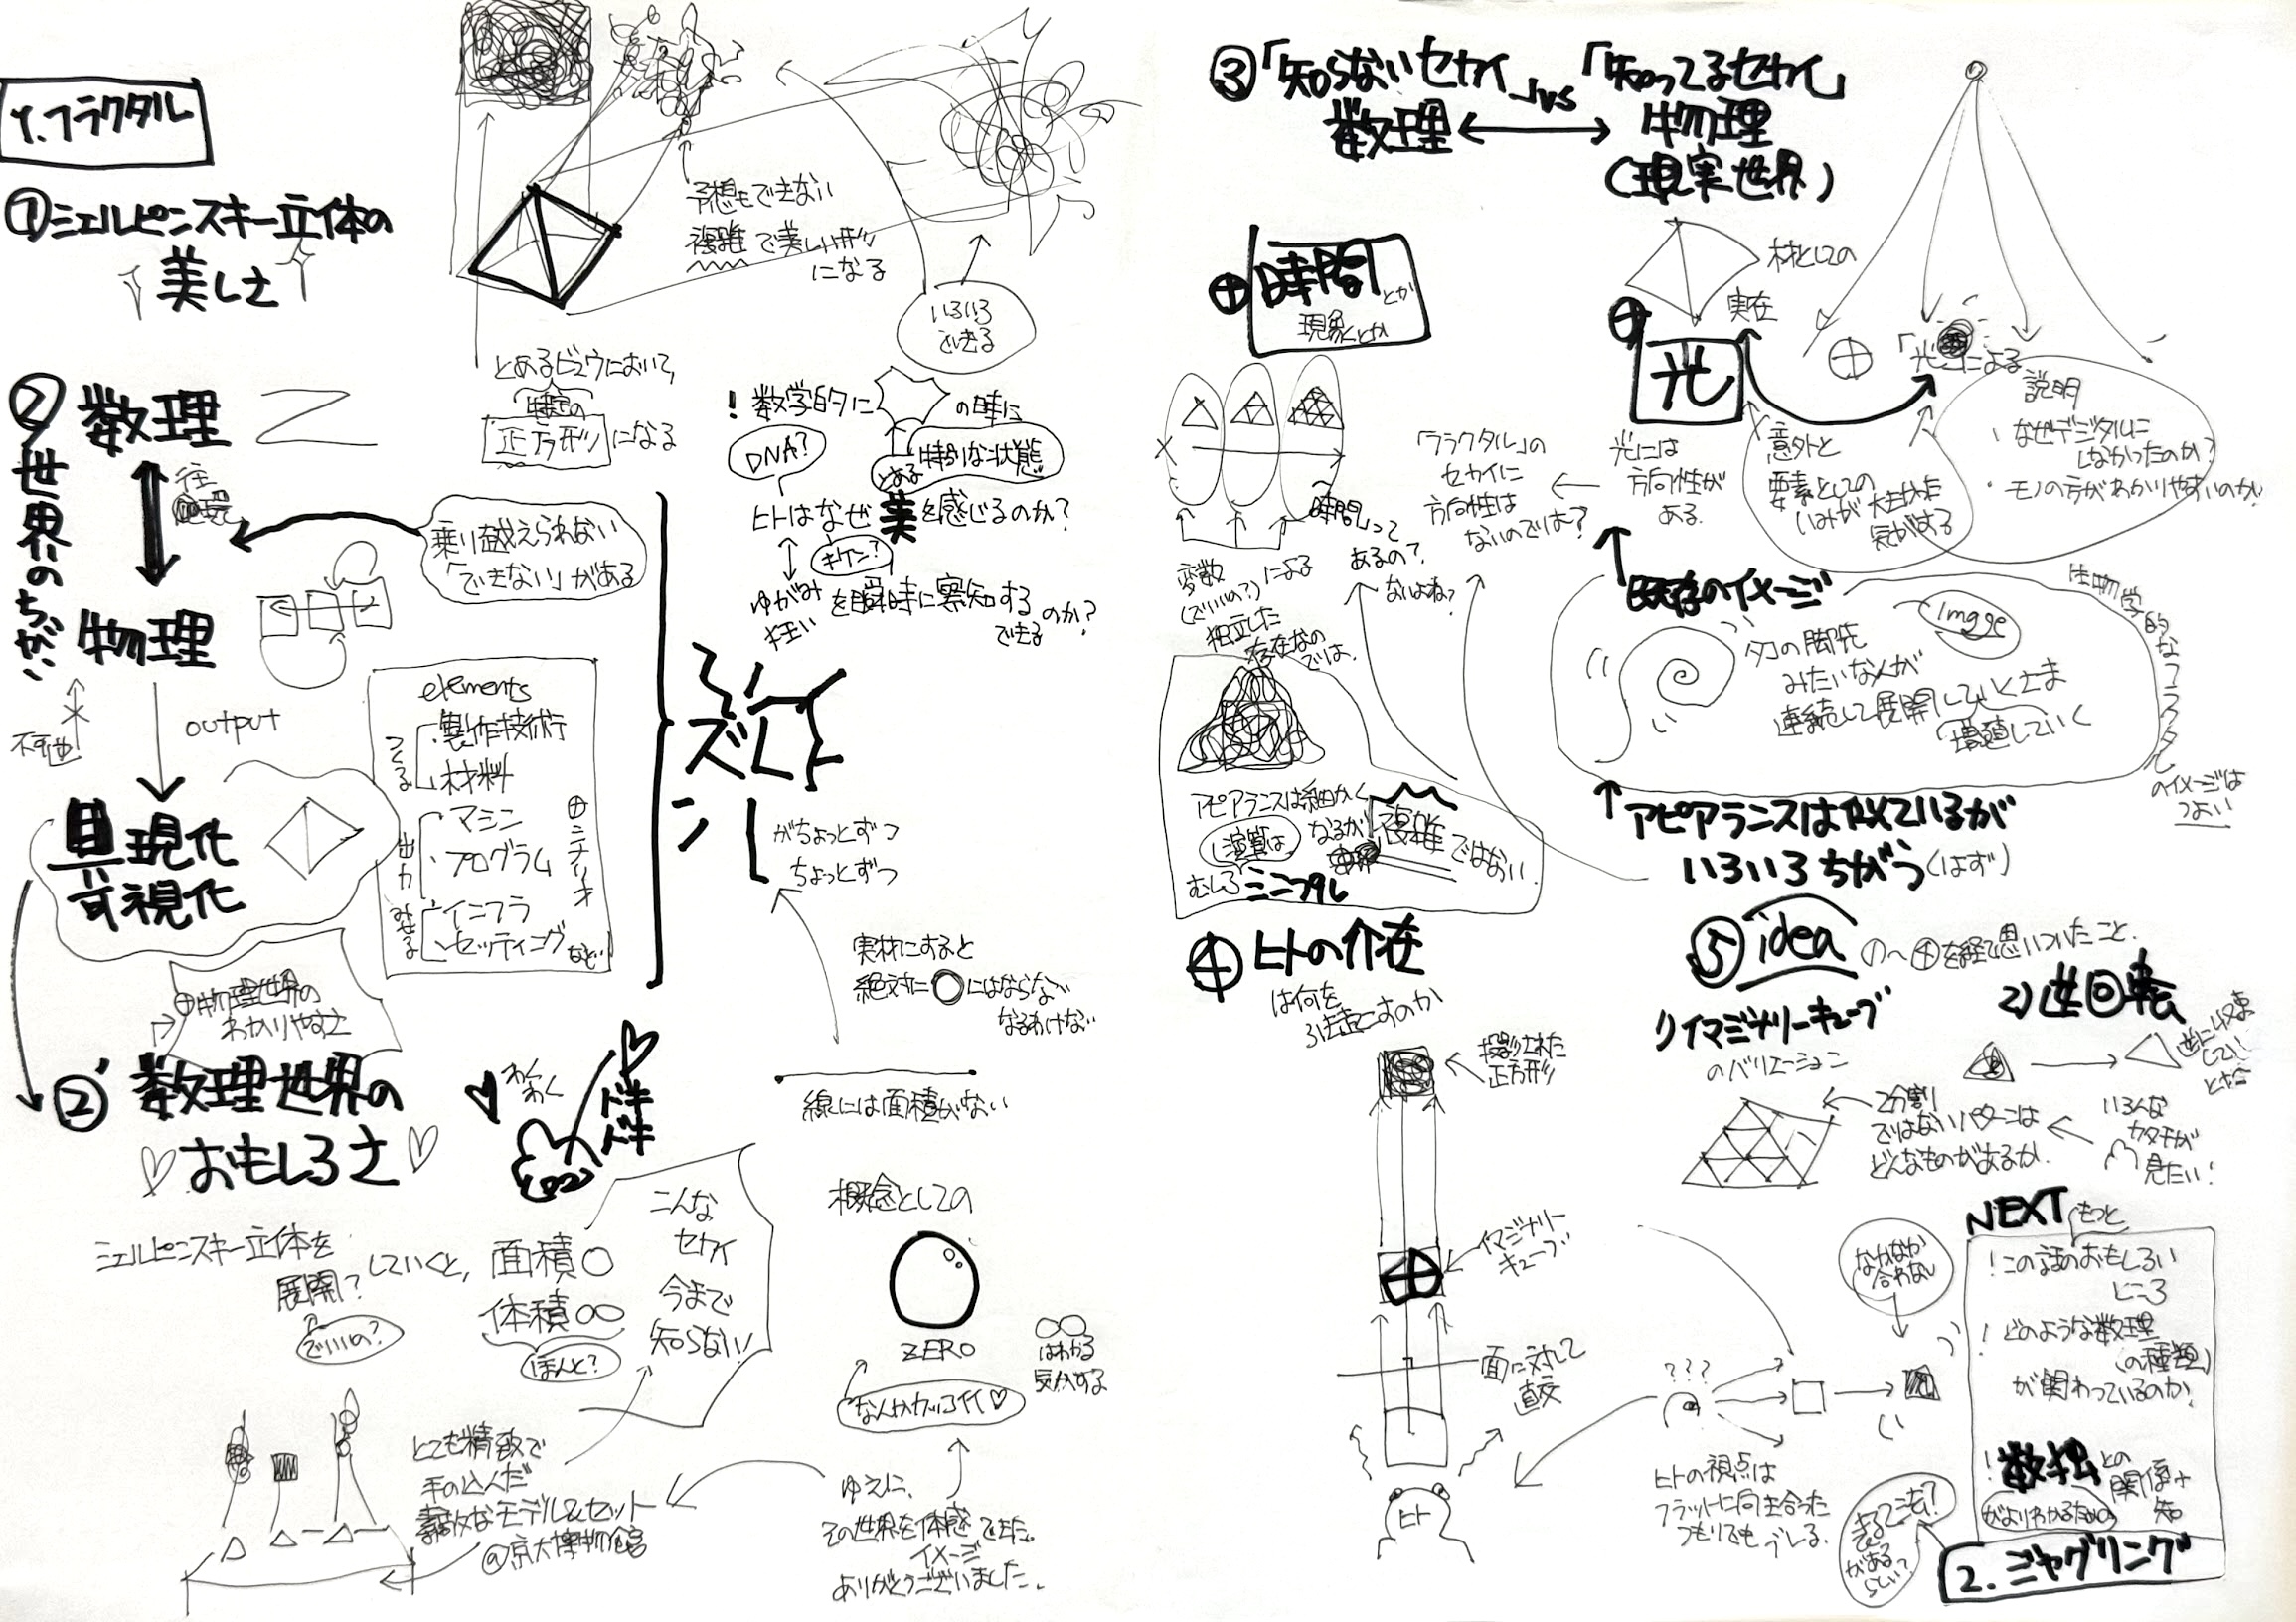 1.フラクタル
①シェルピンスキー立体の
美しさ
予想もできない
複雑で美しい形
になる
いろいろ
できる
とあるビュウにおいて,
特定の
正方形になる
②世界のちがい
数理
往
物理
不可逆
output
具現化
可視化
乗り越えられない
「できない」がある
elements
つくる
製作技術
材料
出力
マシン
プログラム
みせる
インフラ
セッティング など
⊕シナリオ
⊕物理世界の
わかりやすさ
! 数学的に
の時に
DNA?
とある
特別な状態
ヒトはなぜ美を感じるのか?
キケン?
ゆがみ
狂い
を瞬時に察知する
できる
のか?
ズレ
がちょっとずつ
ちょっとずつ
実材にすると
絶対に○にはならない
なるわけない
線には面積がない
②’数理世界の
♡おもしろさ♡
わくわく
ドキドキ
シェルピンスキー立体を
展開?していくと,
でいいの?
面積○
体積∞
ほんと?
こんな
セカイ
今まで
知らない
概念としての
ZERO
なんかカッコイイ♡
∞
はわかる
気がする
とても精緻で
手の込んだ
素敵なモデル&セット
@京大博物館
ゆえに、
その世界を体感できた。
イメージ
ありがとうございました。
③「知らないセカイ」vs「知ってるセカイ」
数理 ↔ 物理
(現実世界)
⊕時間とか
現象とか
材としての
実在
⊕光
光には
方向性が
ある.
「光」による
説明
・なぜデジタルに
しなかったのか?
・モノの方がわかりやすいのか?
意外と
要素としての
いみが大きかった
気がする
「フラクタル」の
セカイに
方向性は
ないのでは?
時間って
あるの?
ないよね?
変数
(でいいの?)による
独立した
存在なの
では.
アピアランスは細かく
なるが複雑ではない.
演算は
むしろミニマル
既存のイメージ
image
タコの脚先
みたいなんが
連続して展開していくさま
増殖していく
生物学的なフラクタル
のイメージは
つよい
アピアランスは似ているが
いろいろちがう(はず)
④ヒトの介在
は何を
引き起こすのか
投影された
正方形
イマジナリー
キューブ
面に対して
直交
ヒト
???
ヒトの視点は
フラットに向き合った
つもりでもブレる.
なかなか
合わない
⑤idea
①〜④を経て思いついたこと.
1)イマジナリーキューブ
のバリエーション
2分割
ではないパターンは
どんなものがあるか.
いろんな
カタチが
見たい!
2)逆回転
逆に収束
していく
とき
NEXT
もっと
!この話のおもしろい
ところ
!どのような数理
(の種類)
が関わっているのか.
!数独との
関係+
がよりわかるための
知
2.ジャグリング